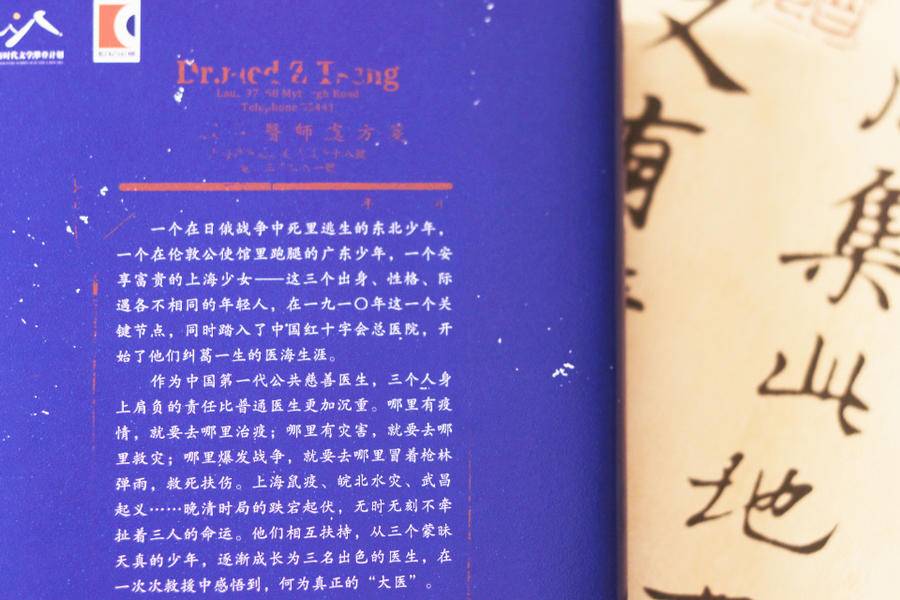 新时代文学攀登计划
Telephone
醫師處方箋
年 月
一个在日俄战争中死里逃生的东北少年，
一个在伦敦公使馆里跑腿的广东少年，一个安
享富贵的上海少女——这三个出身、性格、际
遇各不相同的年轻人，在一九一〇年这一个关
键节点，同时踏入了中国红十字会总医院，开
始了他们纠葛一生的医海生涯。
作为中国第一代公共慈善医生，三个人身
上肩负的责任比普通医生更加沉重。哪里有疫
情，就要去哪里治疫；哪里有灾害，就要去哪
里救灾；哪里爆发战争，就要去哪里冒着枪林
弹雨，救死扶伤。上海鼠疫、皖北水灾、武昌
起义……晚清时局的跌宕起伏，无时无刻不牵
扯着三人的命运。他们相互扶持，从三个蒙昧
天真的少年，逐渐成长为三名出色的医生，在
一次次救援中感悟到，何为真正的“大医”。
集
此地